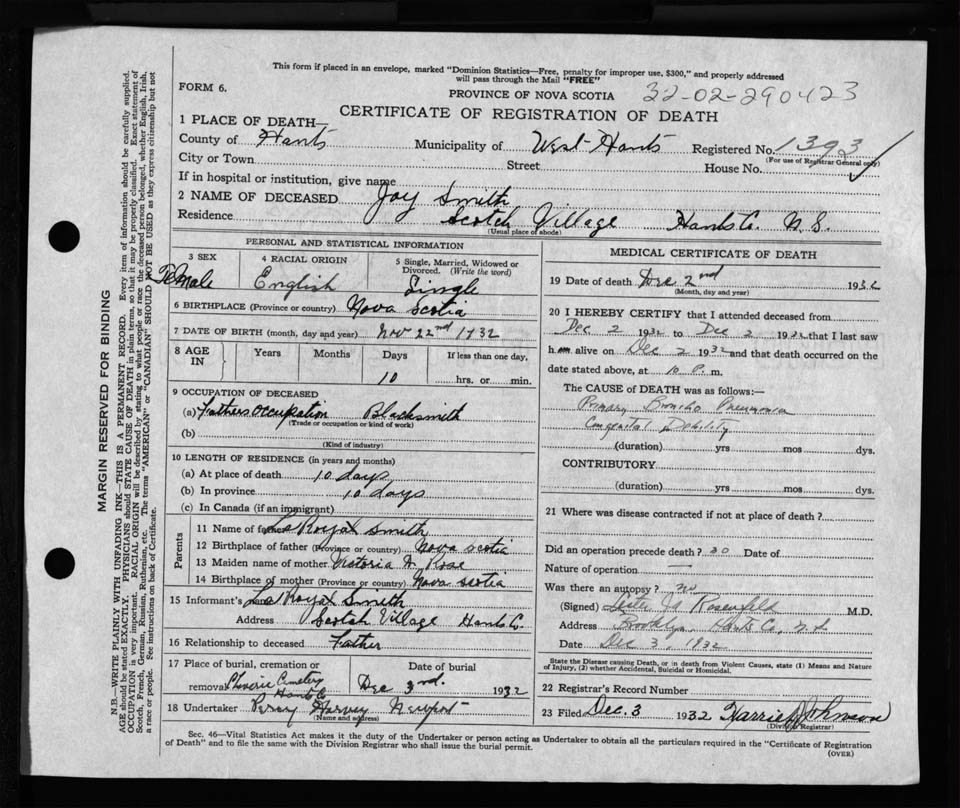 This form if placed in an envelope, marked "Dominion Statistics—Free, penalty for improper use, $300," and properly addressed
will pass through the Mail "FREE"
FORM 6.
PROVINCE OF NOVA SCOTIA
32-02-290423
CERTIFICATE OF REGISTRATION OF DEATH
1 PLACE OF DEATH—
County of Hants Municipality of West-Hants Registered No. 1393
(For use of Registrar General only)
City or Town Street House No.
If in hospital or institution, give name
2 NAME OF DECEASED Joy Smith
Residence Scotch Village Hants Co. N.S.
(Usual place of abode)
PERSONAL AND STATISTICAL INFORMATION
3 SEX
Female
4 RACIAL ORIGIN
English
5 Single, Married, Widowed or
Divorced. (Write the word)
Single
6 BIRTHPLACE (Province or country) Nova Scotia
7 DATE OF BIRTH (month, day and year) Nov 22nd 1932
8 AGE IN
Years Months Days If less than one day,
10 hrs. or min.
9 OCCUPATION OF DECEASED
(a) Fathers Occupation Blacksmith
(Trade or occupation or kind of work)
(b)
(Kind of industry)
10 LENGTH OF RESIDENCE (in years and months)
(a) At place of death 10 days
(b) In province 10 days
(c) In Canada (if an immigrant)
Parents
11 Name of father Le Royal Smith
12 Birthplace of father (Province or country) Nova Scotia
13 Maiden name of mother Victoria A. Rose
14 Birthplace of mother (Province or country) Nova Scotia
15 Informant's Le Royal Smith
Address Scotch Village Hants Co.
16 Relationship to deceased Father
17 Place of burial, cremation or Date of burial
removal Cheverie Cemetery Hants Co Dec 3rd. 1932
18 Undertaker Percy Harvey Newport
(Name and address)
MEDICAL CERTIFICATE OF DEATH
19 Date of death Dec 2nd 1932
(Month, day and year)
20 I HEREBY CERTIFY that I attended deceased from
Dec 2 1932 to Dec 2 1932 that I last saw
h alive on Dec 2 1932 and that death occurred on the
date stated above, at 10 P. m.
The CAUSE of DEATH was as follows:—
Primary Broncho Pneumonia
Congenital Debility
(duration) yrs mos dys.
CONTRIBUTORY
(duration) yrs mos dys.
21 Where was disease contracted if not at place of death?
Did an operation precede death? no Date of
Nature of operation —
Was there an autopsy? no
(Signed) Rosenfeld M.D.
Address Brooklyn, Hants Co, N.S.
Date Dec 3, 1932
State the Disease causing Death, or in death from Violent Causes, state (1) Means and Nature
of Injury, (2) whether Accidental, Suicidal or Homicidal.
22 Registrar's Record Number
23 Filed Dec. 3 1932 Harrie Johnson
(Division Registrar)
Sec. 46—Vital Statistics Act makes it the duty of the Undertaker or person acting as Undertaker to obtain all the particulars required in the "Certificate of Registration
of Death" and to file the same with the Division Registrar who shall issue the burial permit.
(OVER)
MARGIN RESERVED FOR BINDING
N.B.—WRITE PLAINLY, WITH UNFADING INK—THIS IS A PERMANENT RECORD. Every item of information should be carefully supplied.
AGE should be stated EXACTLY. PHYSICIANS should STATE CAUSE OF DEATH in plain terms, so that it may be properly classified. Exact statement of
OCCUPATION is very important. RACIAL ORIGIN will be described by stating to what people or race the deceased person belonged, whether English, Irish,
Scotch, French, German, Russian, Ruthenian, etc. The terms "AMERICAN" or "CANADIAN" SHOULD NOT BE USED as they express citizenship but not
a race or people. See instructions on back of Certificate.